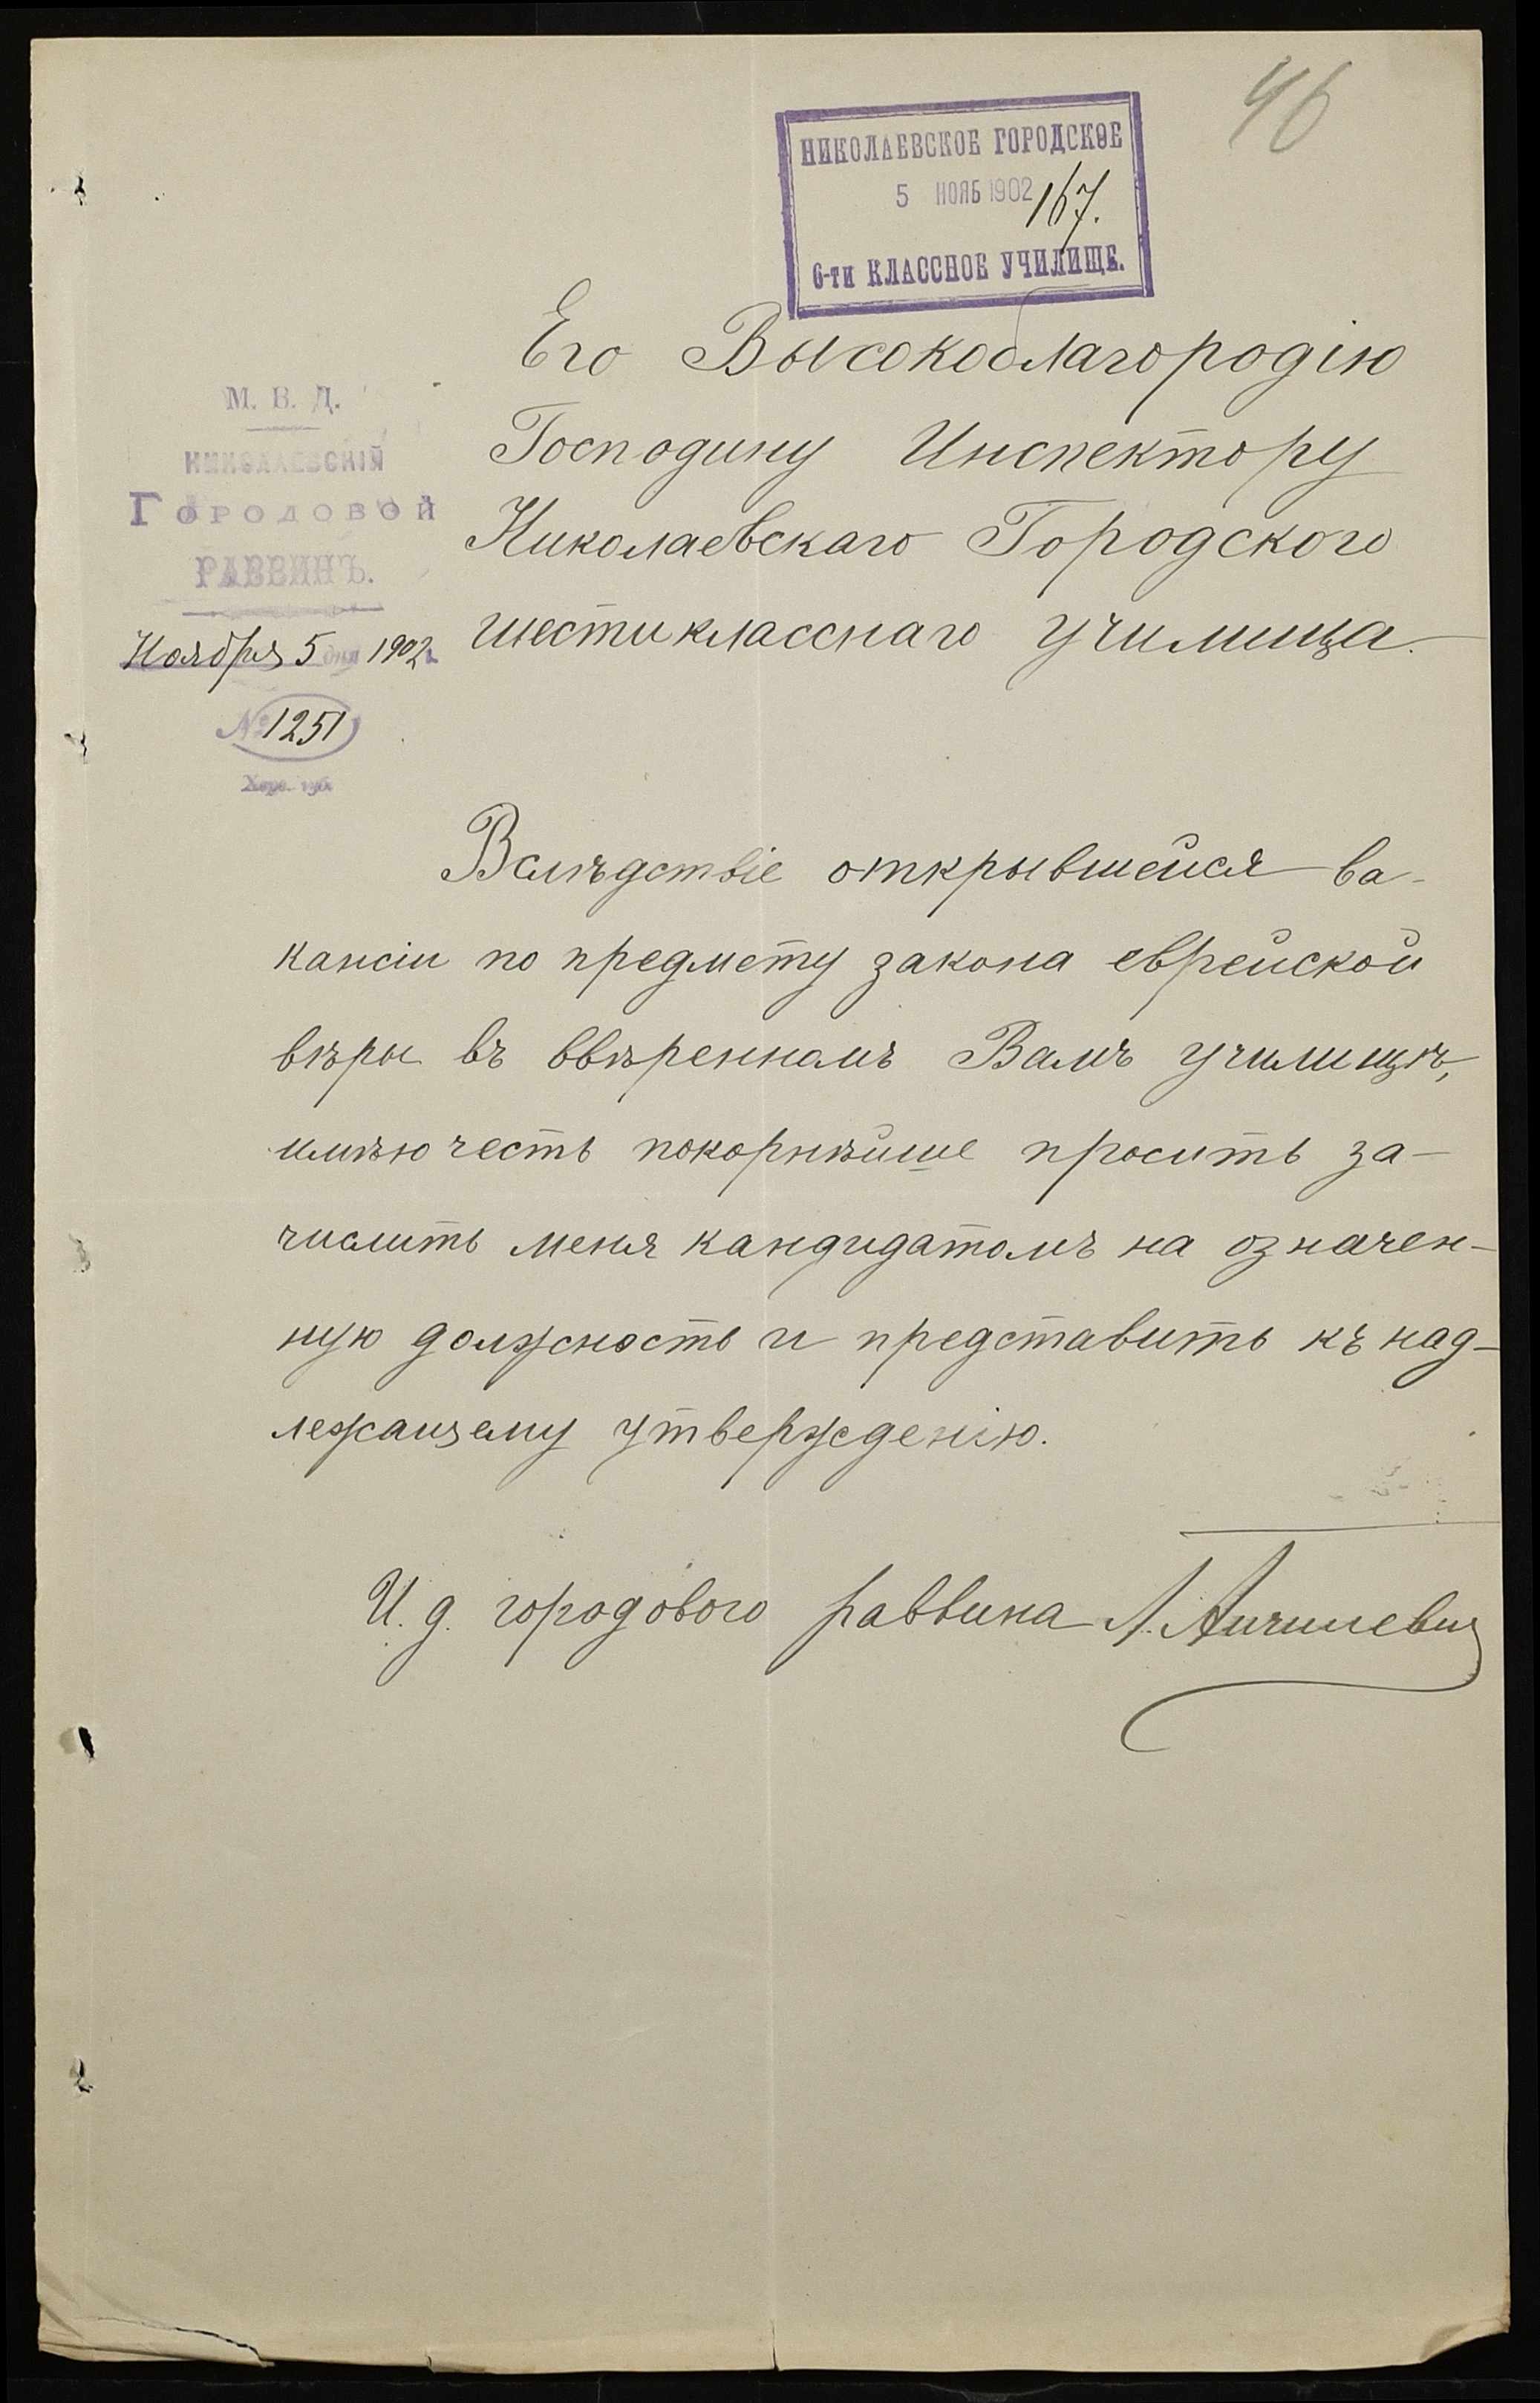 46
НИКОЛАЕВСКОЕ ГОРОДСКОЕ
5 НОЯБ 1902 167.
6-ти КЛАССНОЕ УЧИЛИЩЕ.
Его Высокоблагородію
Господину Инспектору
Николаевскаго Городского
шестикласснаго училища.
М. В. Д.
НИКОЛАЕВСКІЙ
ГОРОДОВОЙ
РАВВИНЪ.
Ноября 5 дня 1902 г.
№ 1251
Херс. губ.
Вслѣдствіе открывшейся ва-
кансіи по предмету закона еврейской
вѣры въ ввѣренномъ Вамъ училищѣ,
имѣю честь покорнѣйше просить за-
числить меня кандидатомъ на означен-
ную должность и представить къ над-
лежащему утвержденію.
И. д. городового раввина Л.